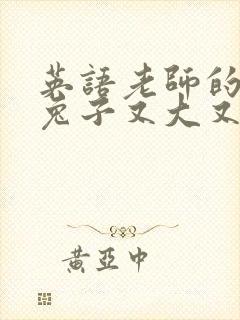 英語老師的
兔子又大又
黃亞中